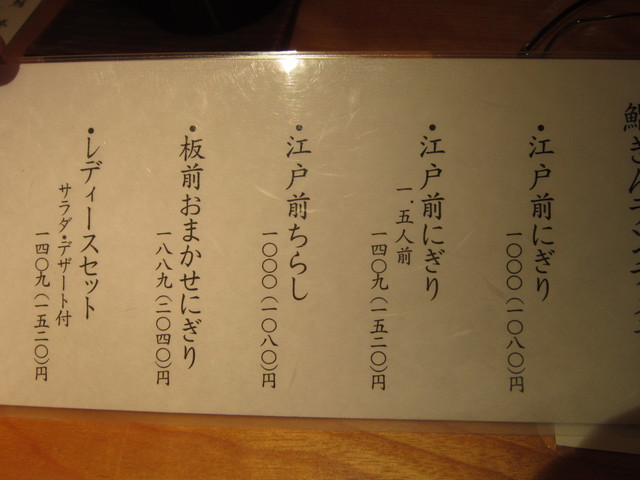 ・江戸前にぎり
一〇〇〇(一〇八〇)円
・江戸前にぎり
一.五人前
一四〇九(一五二〇)円
・江戸前ちらし
一〇〇〇(一〇八〇)円
・板前おまかせにぎり
一八八九(二〇四〇)円
・レディースセット
サラダ・デザート付
一四〇九(一五二〇)円